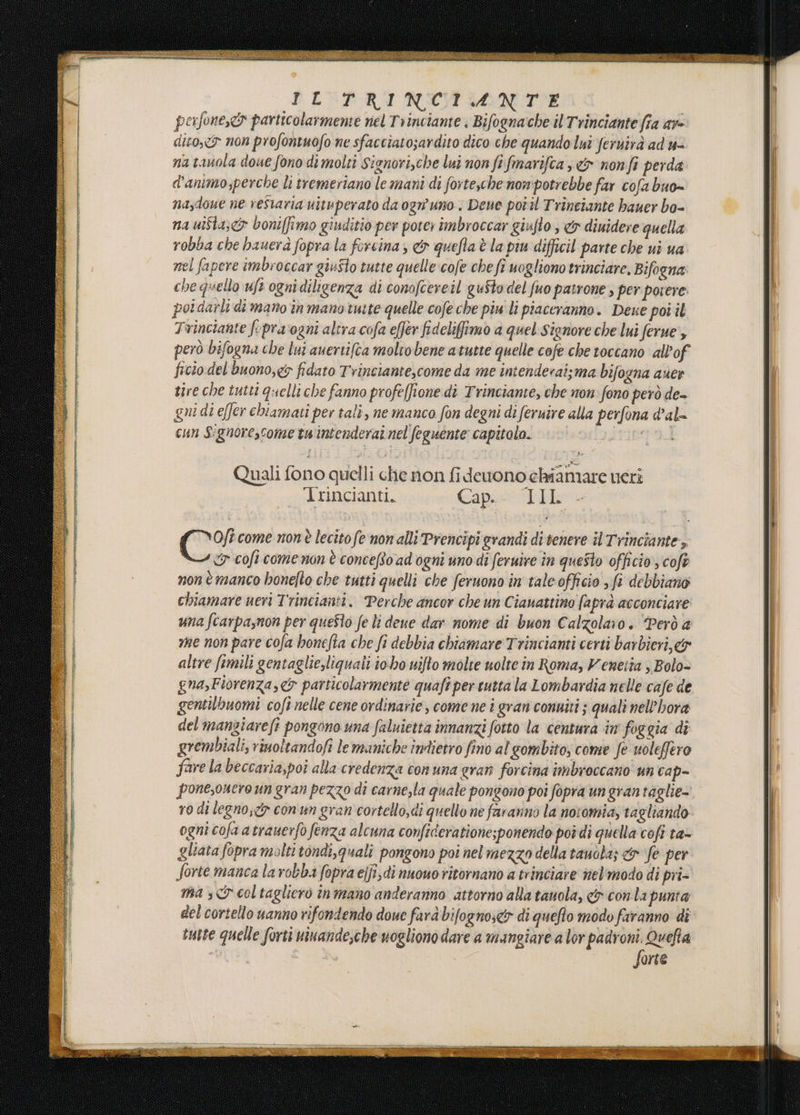 IL TRINCIANTE
perſone,& particolarmente nel Trinciante. Biſogna che il Trinciante ſia ar-
dito,& non profontuoſo ne sfacciato;ardito dico che quando lui ſeruirà ad u-
na tauola doue ſono di molti Signori,che lui non ſi ſmariſca, & non ſi perda
d'animo,perche li tremeriano le mani di forte,che non potrebbe far coſa buo-
na,doue ne reſtaria uituperato da ogn'uno. Deue poi il Trinciante hauer bo-
na uiſta,& boniſſimo giuditio per poter imbroccar giuſto, & diuidere quella
robba che hauerà ſopra la forcina, & queſta è la piu difficil parte che ui ua
nel ſapere imbroccar giuſto tutte quelle coſe che ſi uogliono trinciare. Biſogna
che quello uſi ogni diligenza di conoſcere il guſto del ſuo patrone, per potere
poi darli di mano in mano tutte quelle coſe che piu li piaceranno. Deue poi il
Trinciante ſopra ogni altra coſa eſſer fideliſſimo a quel Signore che lui ſerue,
però biſogna che lui auertiſca molto bene a tutte quelle coſe che toccano all'of
ficio del buono,& fidato Trinciante,come da me intenderai;ma biſogna auer
tire che tutti quelli che fanno profeſſione di Trinciante, che non ſono però de-
gni di eſſer chiamati per tali, ne manco ſon degni di ſeruire alla perſona d'al-
cun Signore,come tu intenderai nel ſeguente capitolo.
Quali ſono quelli che non ſi deuono chiamare ueri
Trincianti. Cap. III.
COſi come non è lecito ſe non alli Prencipi grandi di tenere il Trinciante,
& coſi come non è conceſſo ad ogni uno di ſeruire in queſto officio, coſi
non è manco honeſto che tutti quelli che ſeruono in tale officio, ſi debbiano
chiamare ueri Trincianti. Perche ancor che un Ciauattino ſaprà acconciare
una ſcarpa,non per queſto ſe li deue dar nome di buon Calzolaro. Però a
me non pare coſa honeſta che ſi debbia chiamare Trincianti certi barbieri,&
altre ſimili gentaglie,liquali io ho uiſto molte uolte in Roma, Venetia, Bolo-
gna,Fiorenza,& particolarmente quaſi per tutta la Lombardia nelle caſe de
gentilhuomi coſi nelle cene ordinarie, come ne i gran conuiti; quali nell'hora
del mangiareſi pongono una ſaluietta innanzi ſotto la centura in foggia di
grembiali, riuoltandoſi le maniche indietro fino al gombito, come ſe uoleſſero
fare la beccaria,poi alla credenza con una gran forcina imbroccano un cap-
pone,ouero un gran pezzo di carne,la quale pongono poi ſopra un gran taglie-
ro di legno,& con un gran cortello,di quello ne faranno la notomia, tagliando
ogni coſa a trauerſo ſenza alcuna conſideratione;ponendo poi di quella coſi ta-
gliata ſopra molti tondi,quali pongono poi nel mezzo della tauola; & ſe per
ſorte manca la robba ſopra eſſi,di nuouo ritornano a trinciare nel modo di pri-
ma, & col tagliero in mano anderanno attorno alla tauola, & con la punta
del cortello uanno rifondendo doue farà biſogno,& di queſto modo faranno di
tutte quelle ſorti uiuande,che uogliono dare a mangiare a lor padroni. Queſta
ſorte